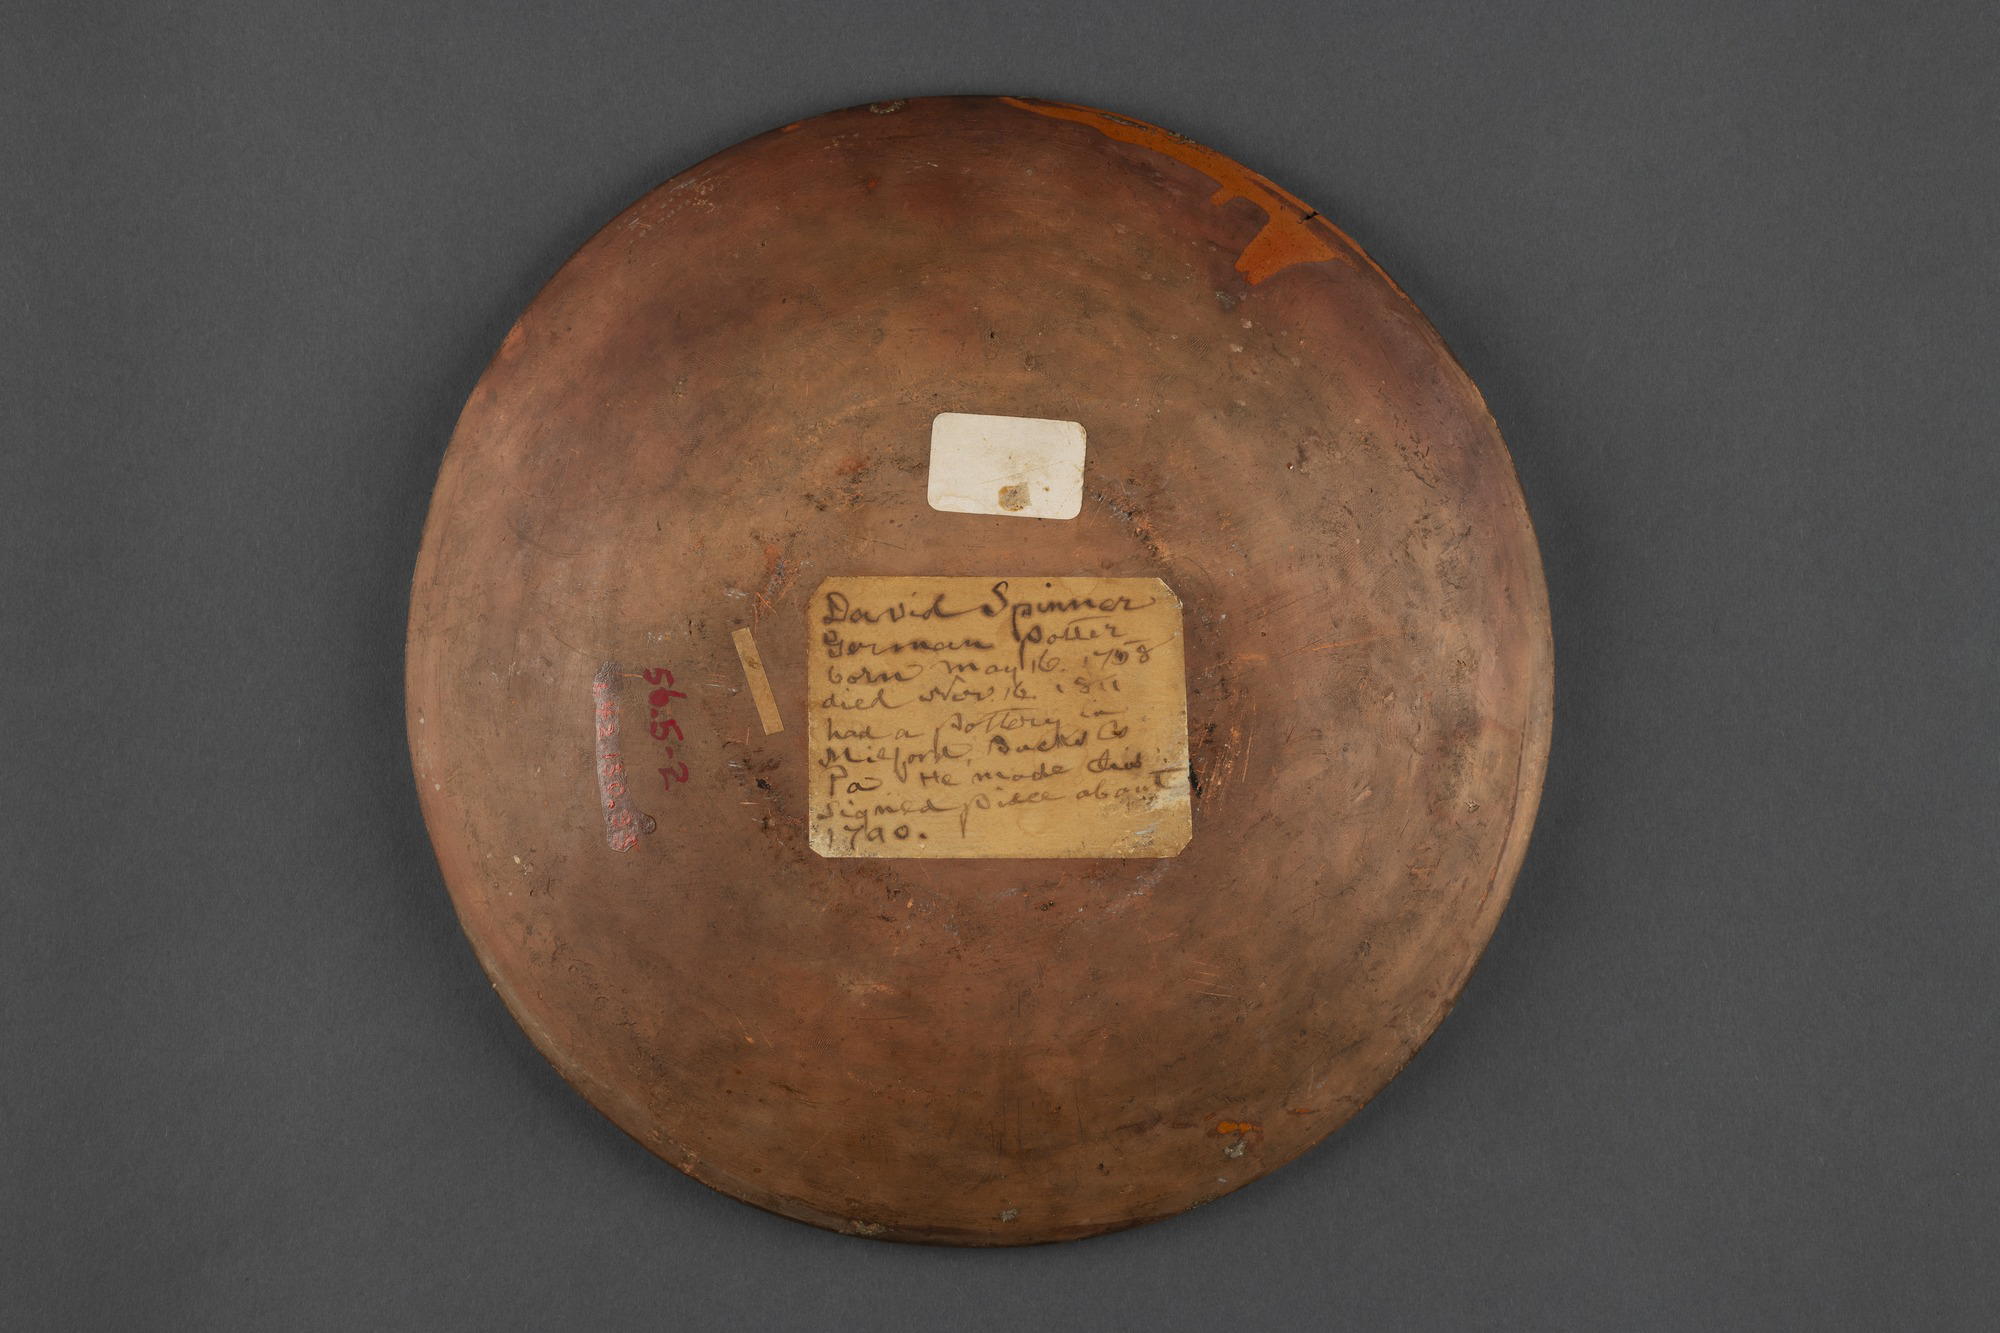 David Spinner
German Potter
born May 16. 1758
died Nov. 16. 1811
had a Pottery in
Milford, Bucks Co
Pa He made this
signed piece about
1790.
56.5-2